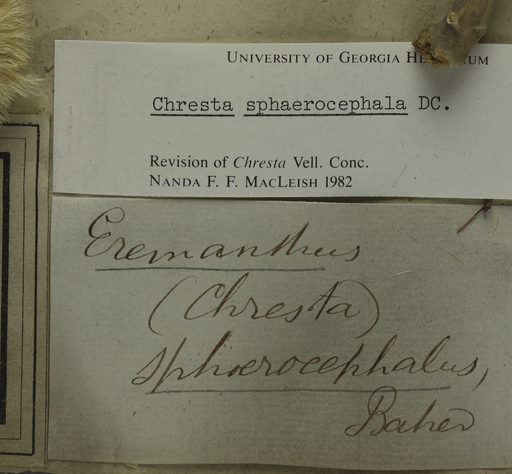 UNIVERSITY OF GEORGIA
Chresta sphaerocephala DC.
Revision of Chresta Vell. Conc.
NANDA F. F. MACLEISH 1982
Eremanthus
(Chresta)
sphoerocephalus,
Baker